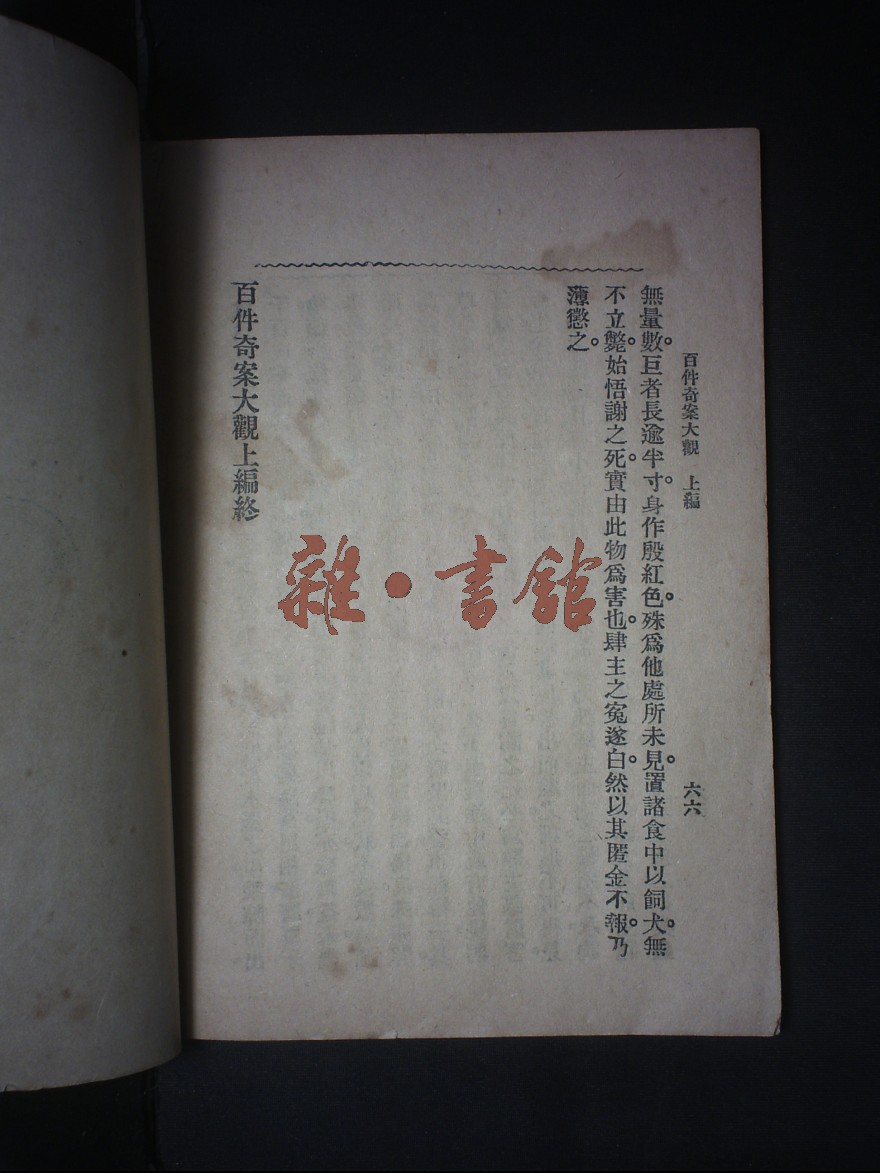 百件奇案大觀 上編 六六
無量數。巨者長逾半寸。身作殷紅色。殊爲他處所未見。置諸食中以飼犬。無
不立斃。始悟謝之死。實由此物爲害也。肆主之寃遂白。然以其匿金不報。乃
薄懲之。
百件奇案大觀上編終
雜·書館